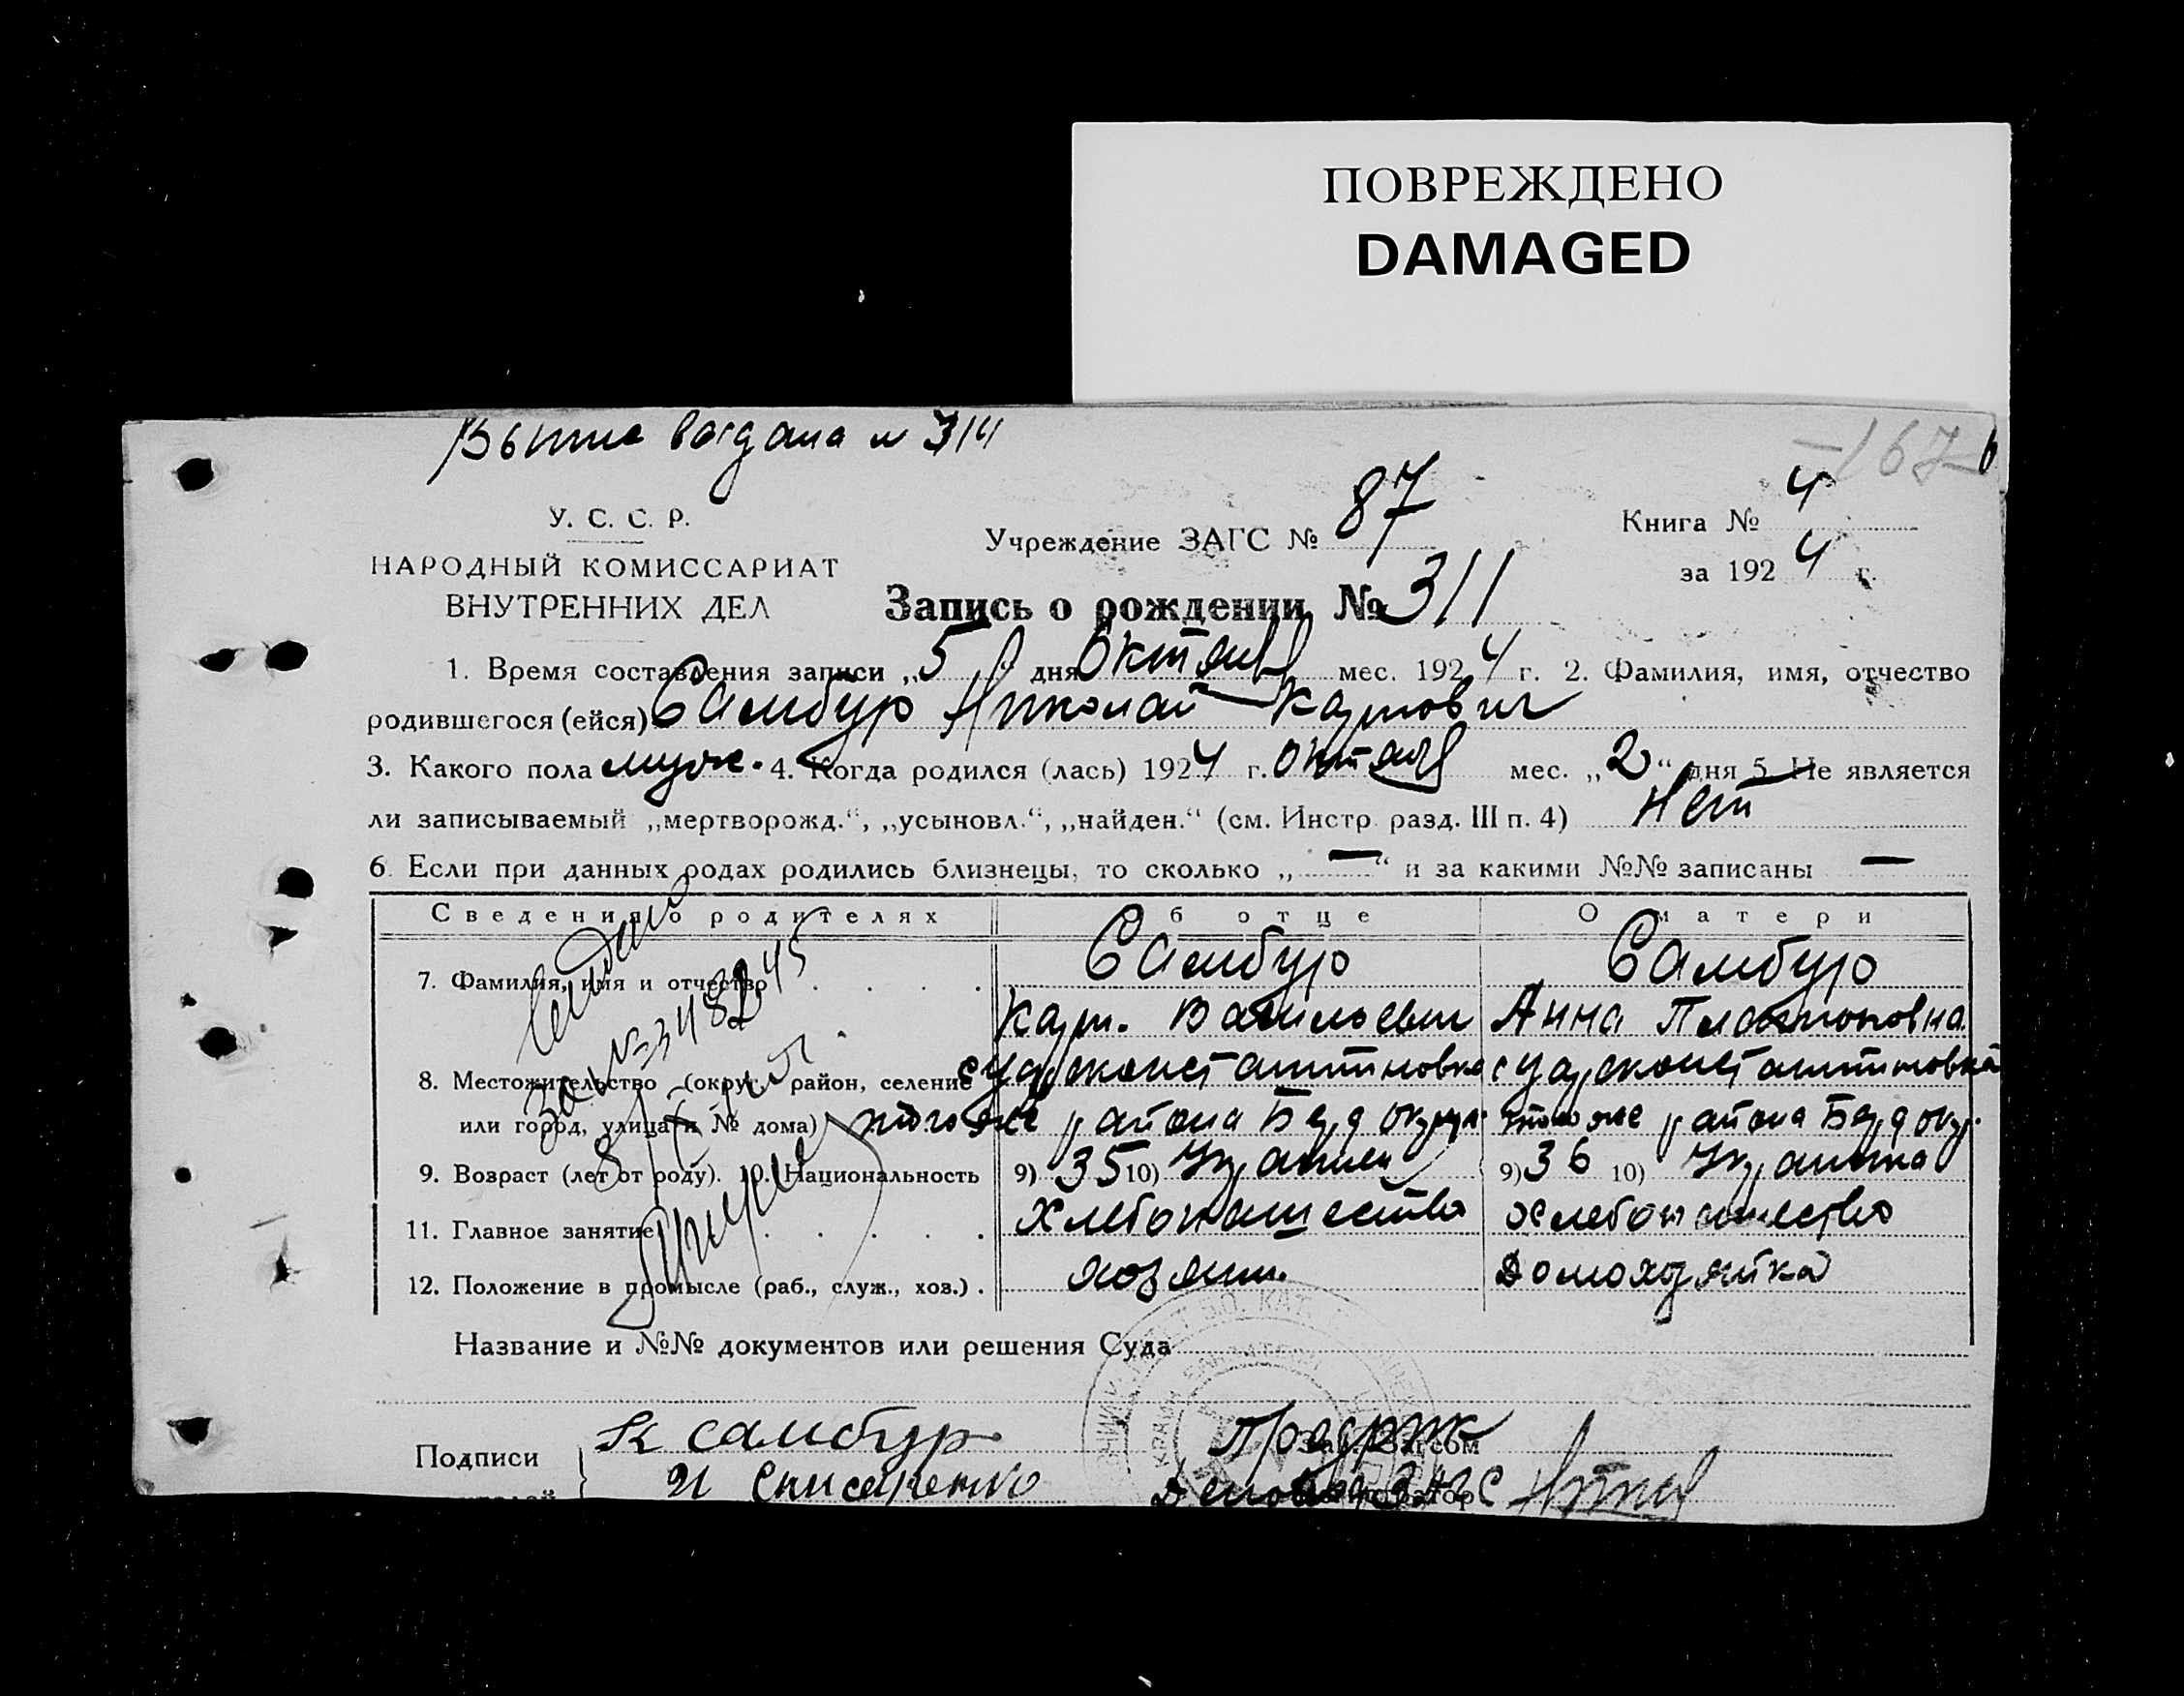 ПОВРЕЖДЕНО
DAMAGED
-167
У. С. С. Р.
НАРОДНЫЙ КОМИССАРИАТ
ВНУТРЕННИХ ДЕЛ
Учреждение ЗАГС № 87
Книга № 4
за 1924 г.
Запись о рождении № 311
1. Время составления записи „5“ дня Октяб мес. 1924 г. 2. Фамилия, имя, отчество
родившегося (ейся) Самбур Николай Карпович
3. Какого пола муж. 4. Когда родился (лась) 1924 г. октяб мес. „2“ дня 5. Не является
ли записываемый „мертворожд.“, „усыновл.“, „найден.“ (см. Инстр. разд. III п. 4) Нет
6. Если при данных родах родились близнецы, то сколько „—“ и за какими №№ записаны —
Сведения о родителях Об отце О матери
7. Фамилия, имя и отчество Самбур Самбур
Карп. Васильевич Анна Платоновна
8. Местожительство (округ, район, селение с Цареконстантиновка с Цареконстантиновка
или город, улица и № дома) того же района Берд округа того же района Берд окр.
9. Возраст (лет от роду). 10. Национальность 9) 35 10) Украинец 9) 36 10) Украинка
11. Главное занятие Хлебопашество хлебопашество
12. Положение в промысле (раб., служ., хоз.) хозяин. Домохозяйка
Название и №№ документов или решения Суда
Подписи К Самбур